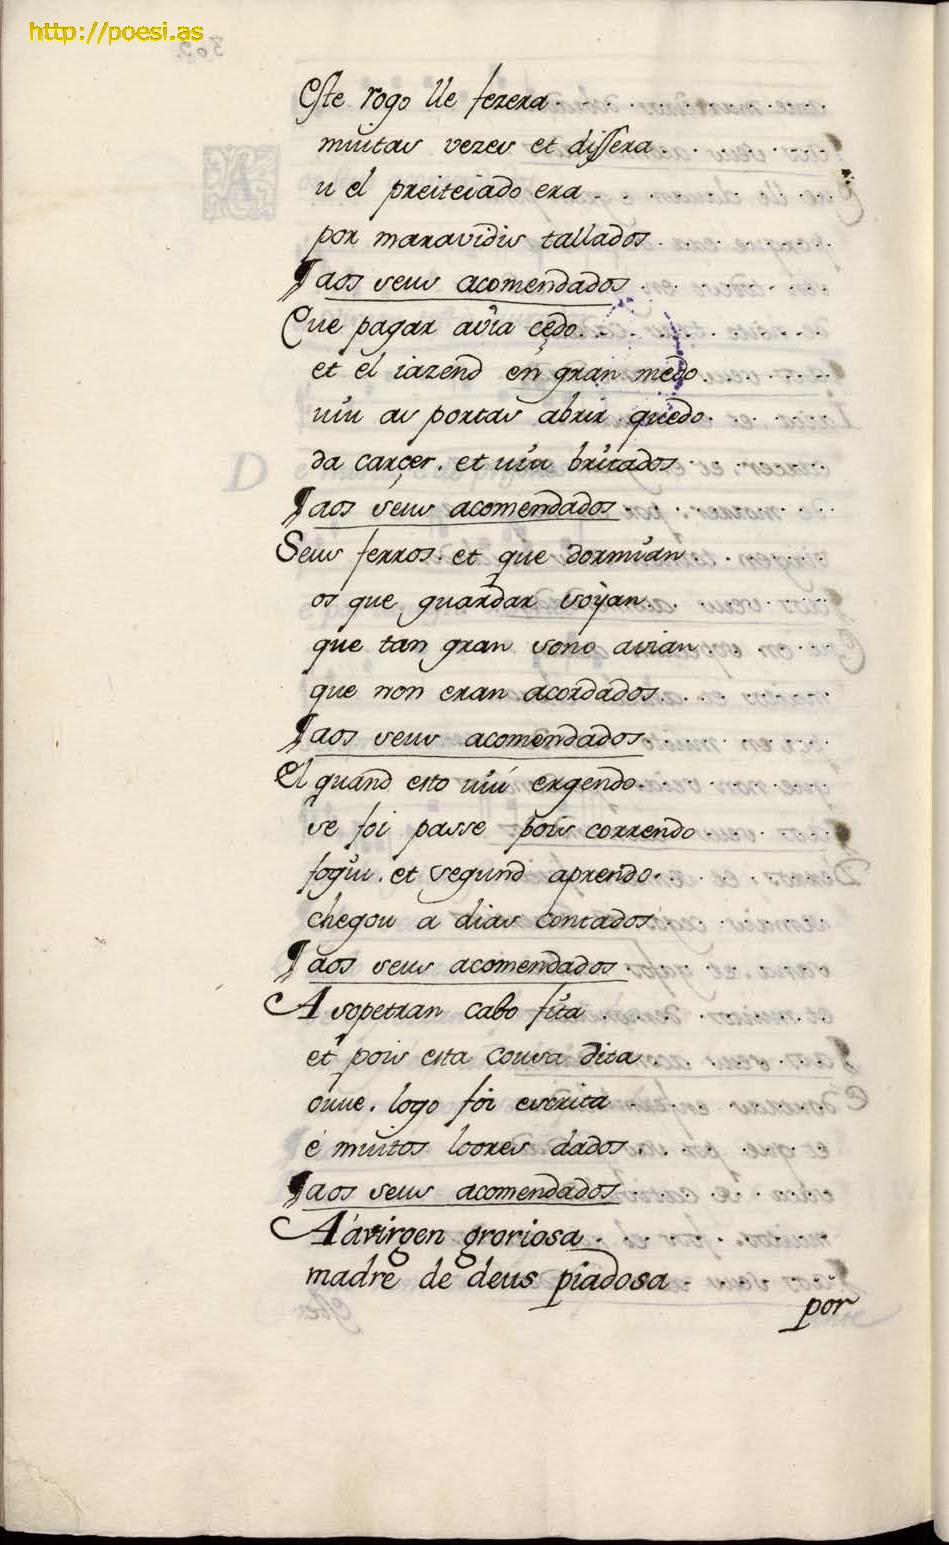 http://poesi.as
Este rogo lle fezera
muitas vezes et dissera
u el preiteiado era
por maravidis tallados
¶ aos seus acomendados
Que pagar avia cedo
et el iazend en gran medo
viu as portas abrir quedo
da carçer. et viu britados
¶ aos seus acomendados
Seus ferros. et que dormian
os que guardar soyan
que tan gran sono avian
que non eran acordados
¶ aos seus acomendados
El quand esto viu ergendo
se foi passe pois correndo
fogiu. et segund aprendo
chegou a dias contados
¶ aos seus acomendados
A sopetran cabo fita
et pois esta cousa dita
ouue. logo foi escrita
e muitos loores dados
¶ aos seus acomendados
A avirgen groriosa
madre de deus piadosa
por